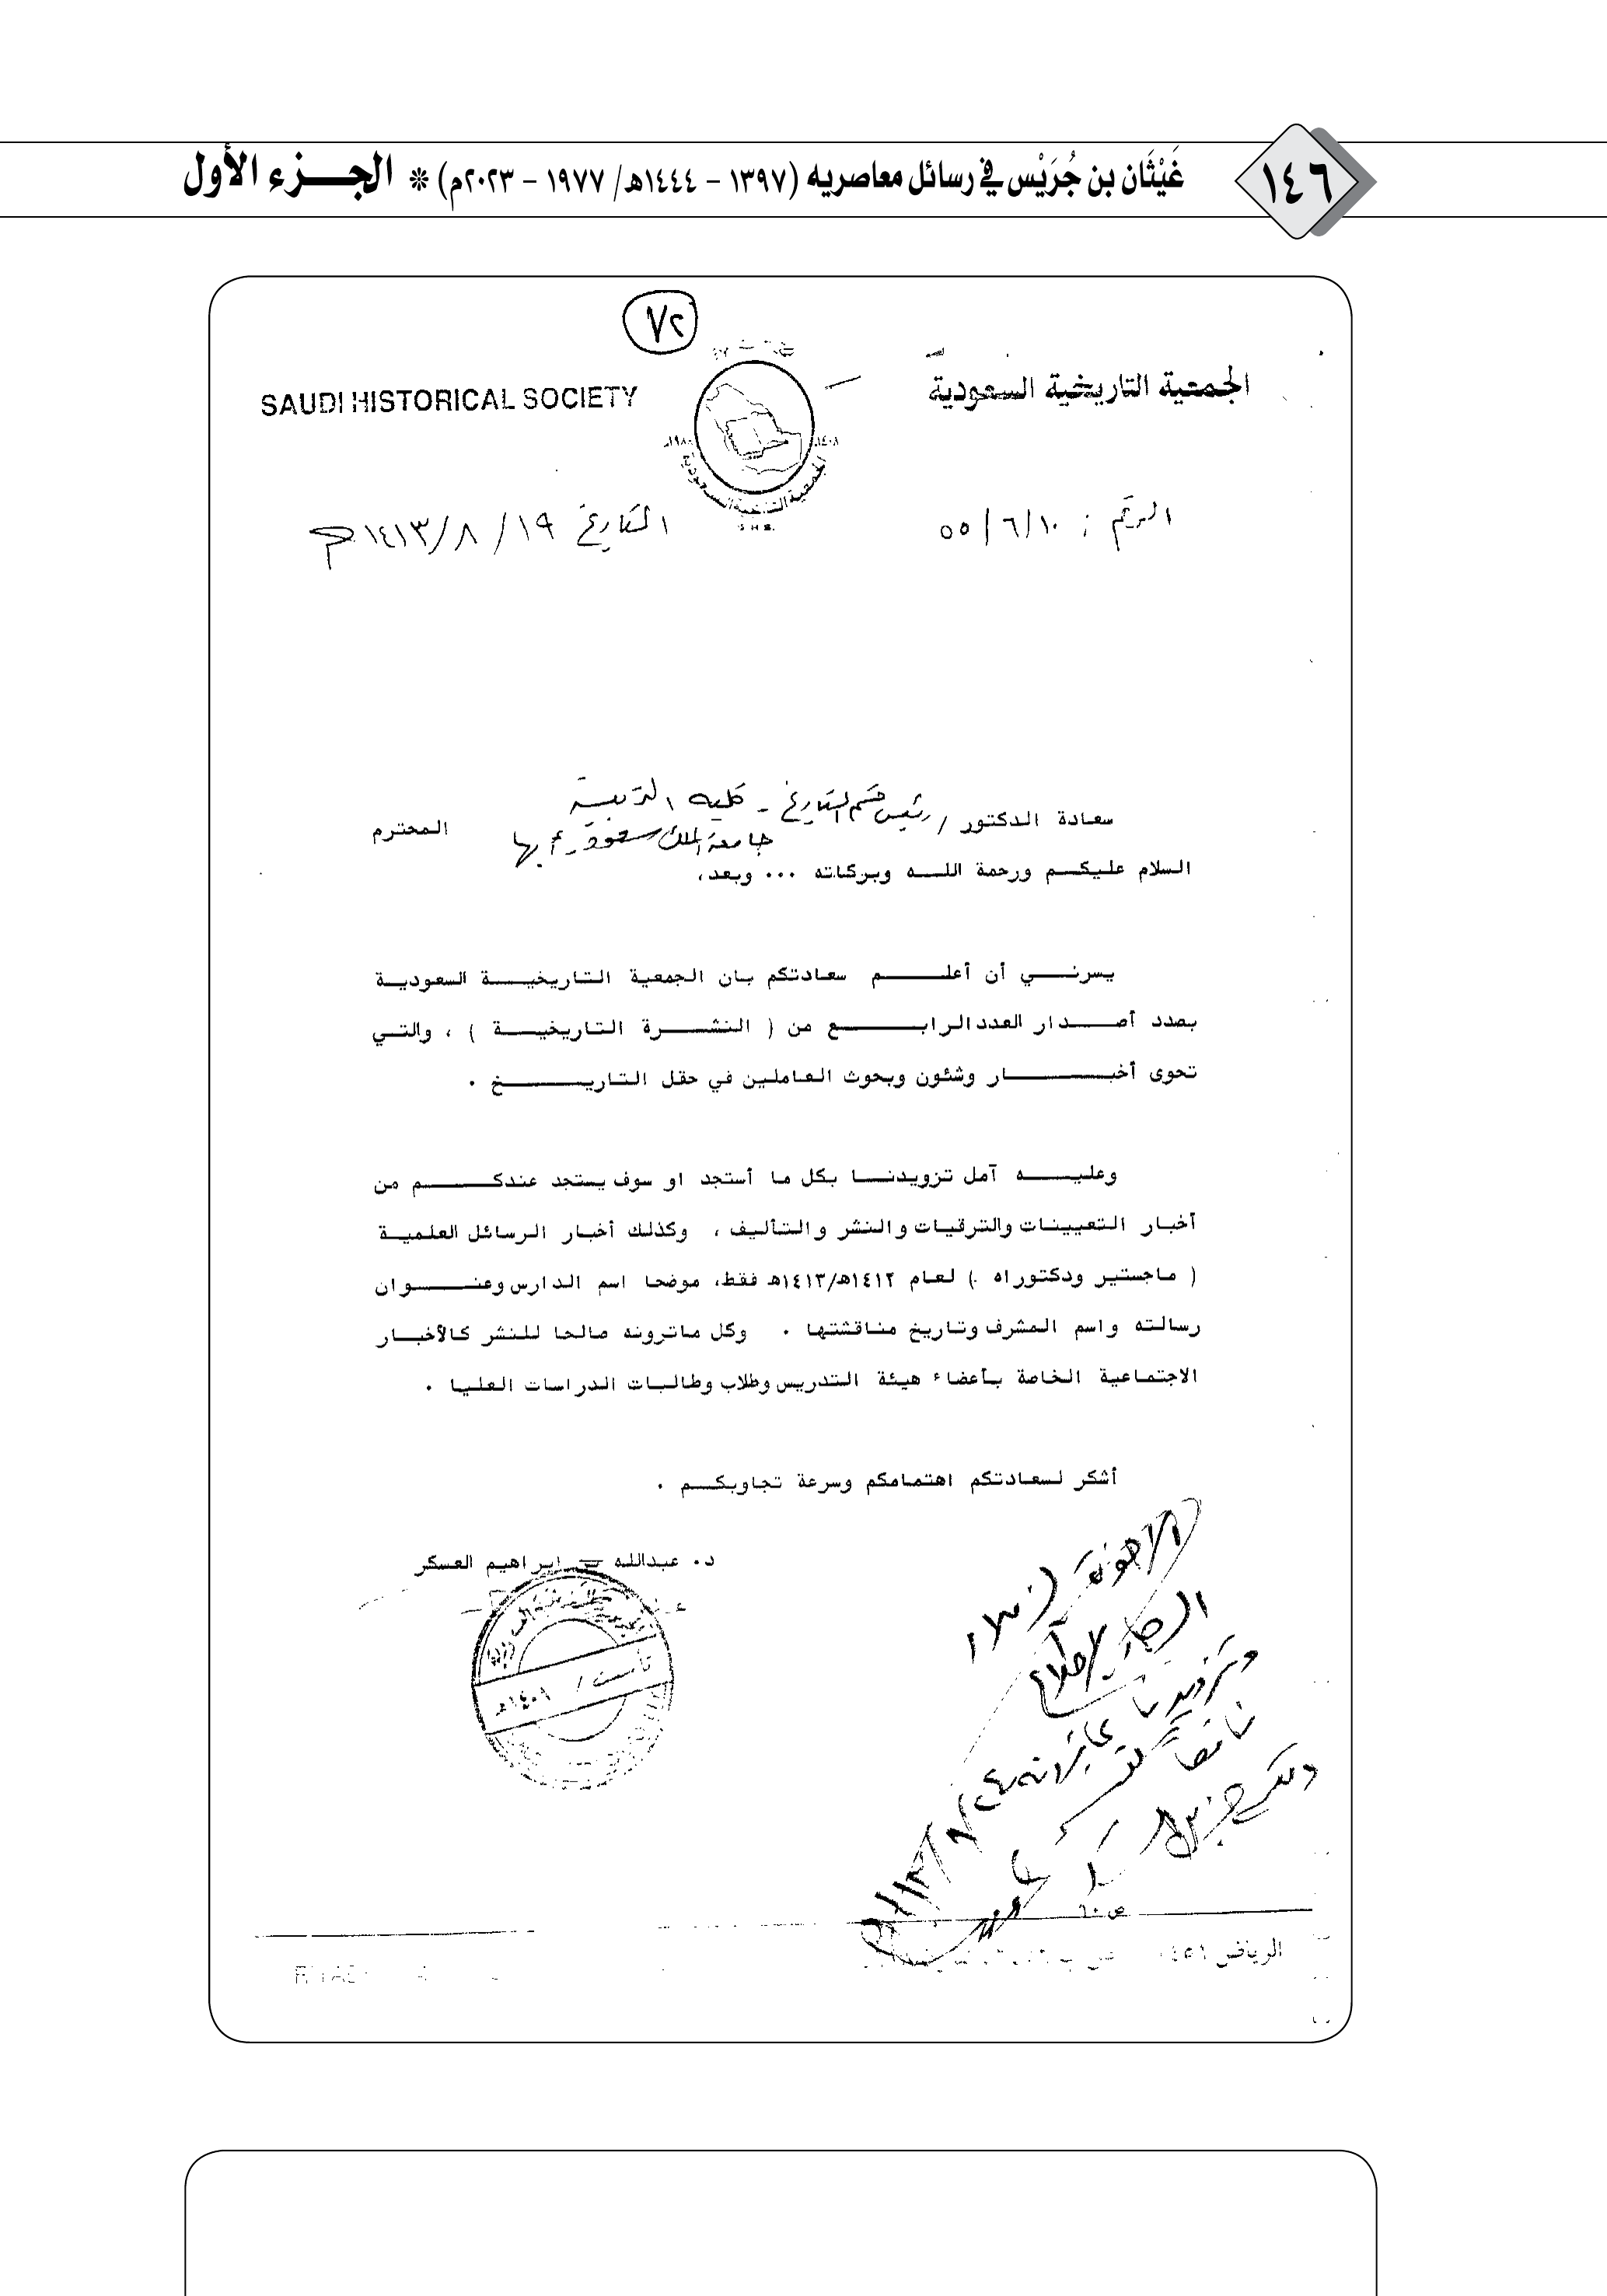 ١٤٦
غَيْثَان بن جُرَيْس في رسائل معاصريه (١٣٩٧ - ١٤٤٤هـ/ ١٩٧٧ - ٢٠٢٣م) * الجـــزء الأول
٧٢
الجمعية التاريخية السعودية
SAUDI HISTORICAL SOCIETY
الرقم : ٥٥/٦/١٠
التاريخ ١٩ / ٨ / ١٤١٣هـ
سعادة الدكتور / رئيس قسم التاريخ - كلية التربية
جامعة الملك سعود - أبها المحترم
السلام عليكم ورحمة الله وبركاته ... وبعد،
يسرني أن أعلم سعادتكم بان الجمعية التاريخية السعودية
بصدد أصدار العدد الرابع من ( النشرة التاريخية ) ، والتي
تحوى أخبار وشئون وبحوث العاملين في حقل التاريخ .
وعليه آمل تزويدنا بكل ما أستجد او سوف يستجد عندكم من
أخبار التعيينات والترقيات والنشر والتأليف ، وكذلك أخبار الرسائل العلمية
( ماجستير ودكتوراه ) لعام ١٤١٢هـ/١٤١٣هـ فقط، موضحا اسم الدارس وعنوان
رسالته واسم المشرف وتاريخ مناقشتها . وكل ماترونه صالحا للنشر كالأخبار
الاجتماعية الخاصة بأعضاء هيئة التدريس وطلاب وطالبات الدراسات العليا .
أشكر لسعادتكم اهتمامكم وسرعة تجاوبكم .
د. عبدالله بن ابراهيم العسكر
تأسست / ١٤٠٩هـ
الرياض